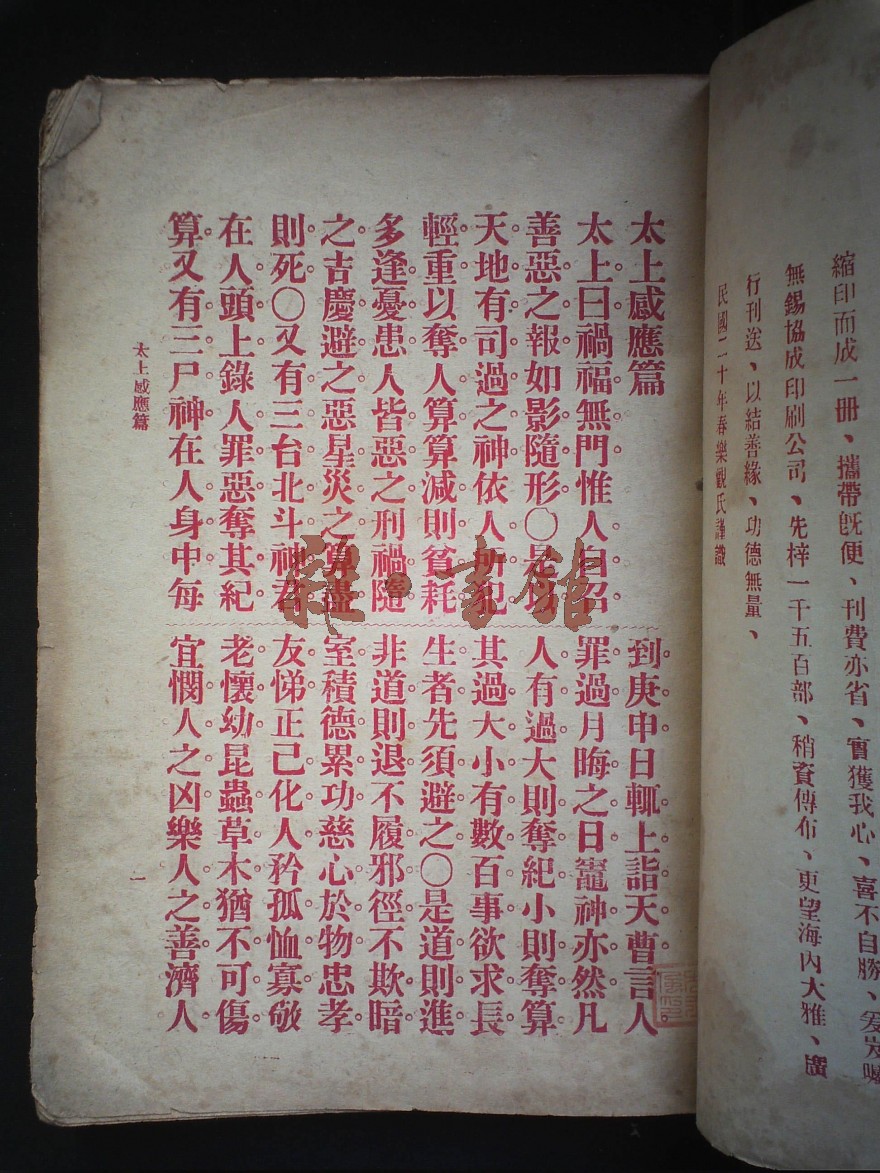 縮印而成一冊、攜帶旣便、刊費亦省、實獲我心、喜不自勝、爰岌囑
無錫協成印刷公司、先梓一千五百部、稍資傳布、更望海內大雅、廣
行刊送、以結善緣、功德無量、
民國二十年春樂觀氏謹識
太上感應篇
太上曰禍福無門惟人自召
善惡之報如影隨形〇是以
天地有司過之神依人所犯
輕重以奪人算算減則貧耗
多逢憂患人皆惡之刑禍隨
之吉慶避之惡星災之算盡
則死〇又有三台北斗神君
在人頭上錄人罪惡奪其紀
算又有三尸神在人身中每
到庚申日輒上詣天曹言人
罪過月晦之日竈神亦然凡
人有過大則奪紀小則奪算
其過大小有數百事欲求長
生者先須避之〇是道則進
非道則退不履邪徑不欺暗
室積德累功慈心於物忠孝
友悌正己化人矜孤恤寡敬
老懷幼昆蟲草木猶不可傷
宜憫人之凶樂人之善濟人
太上感應篇
一